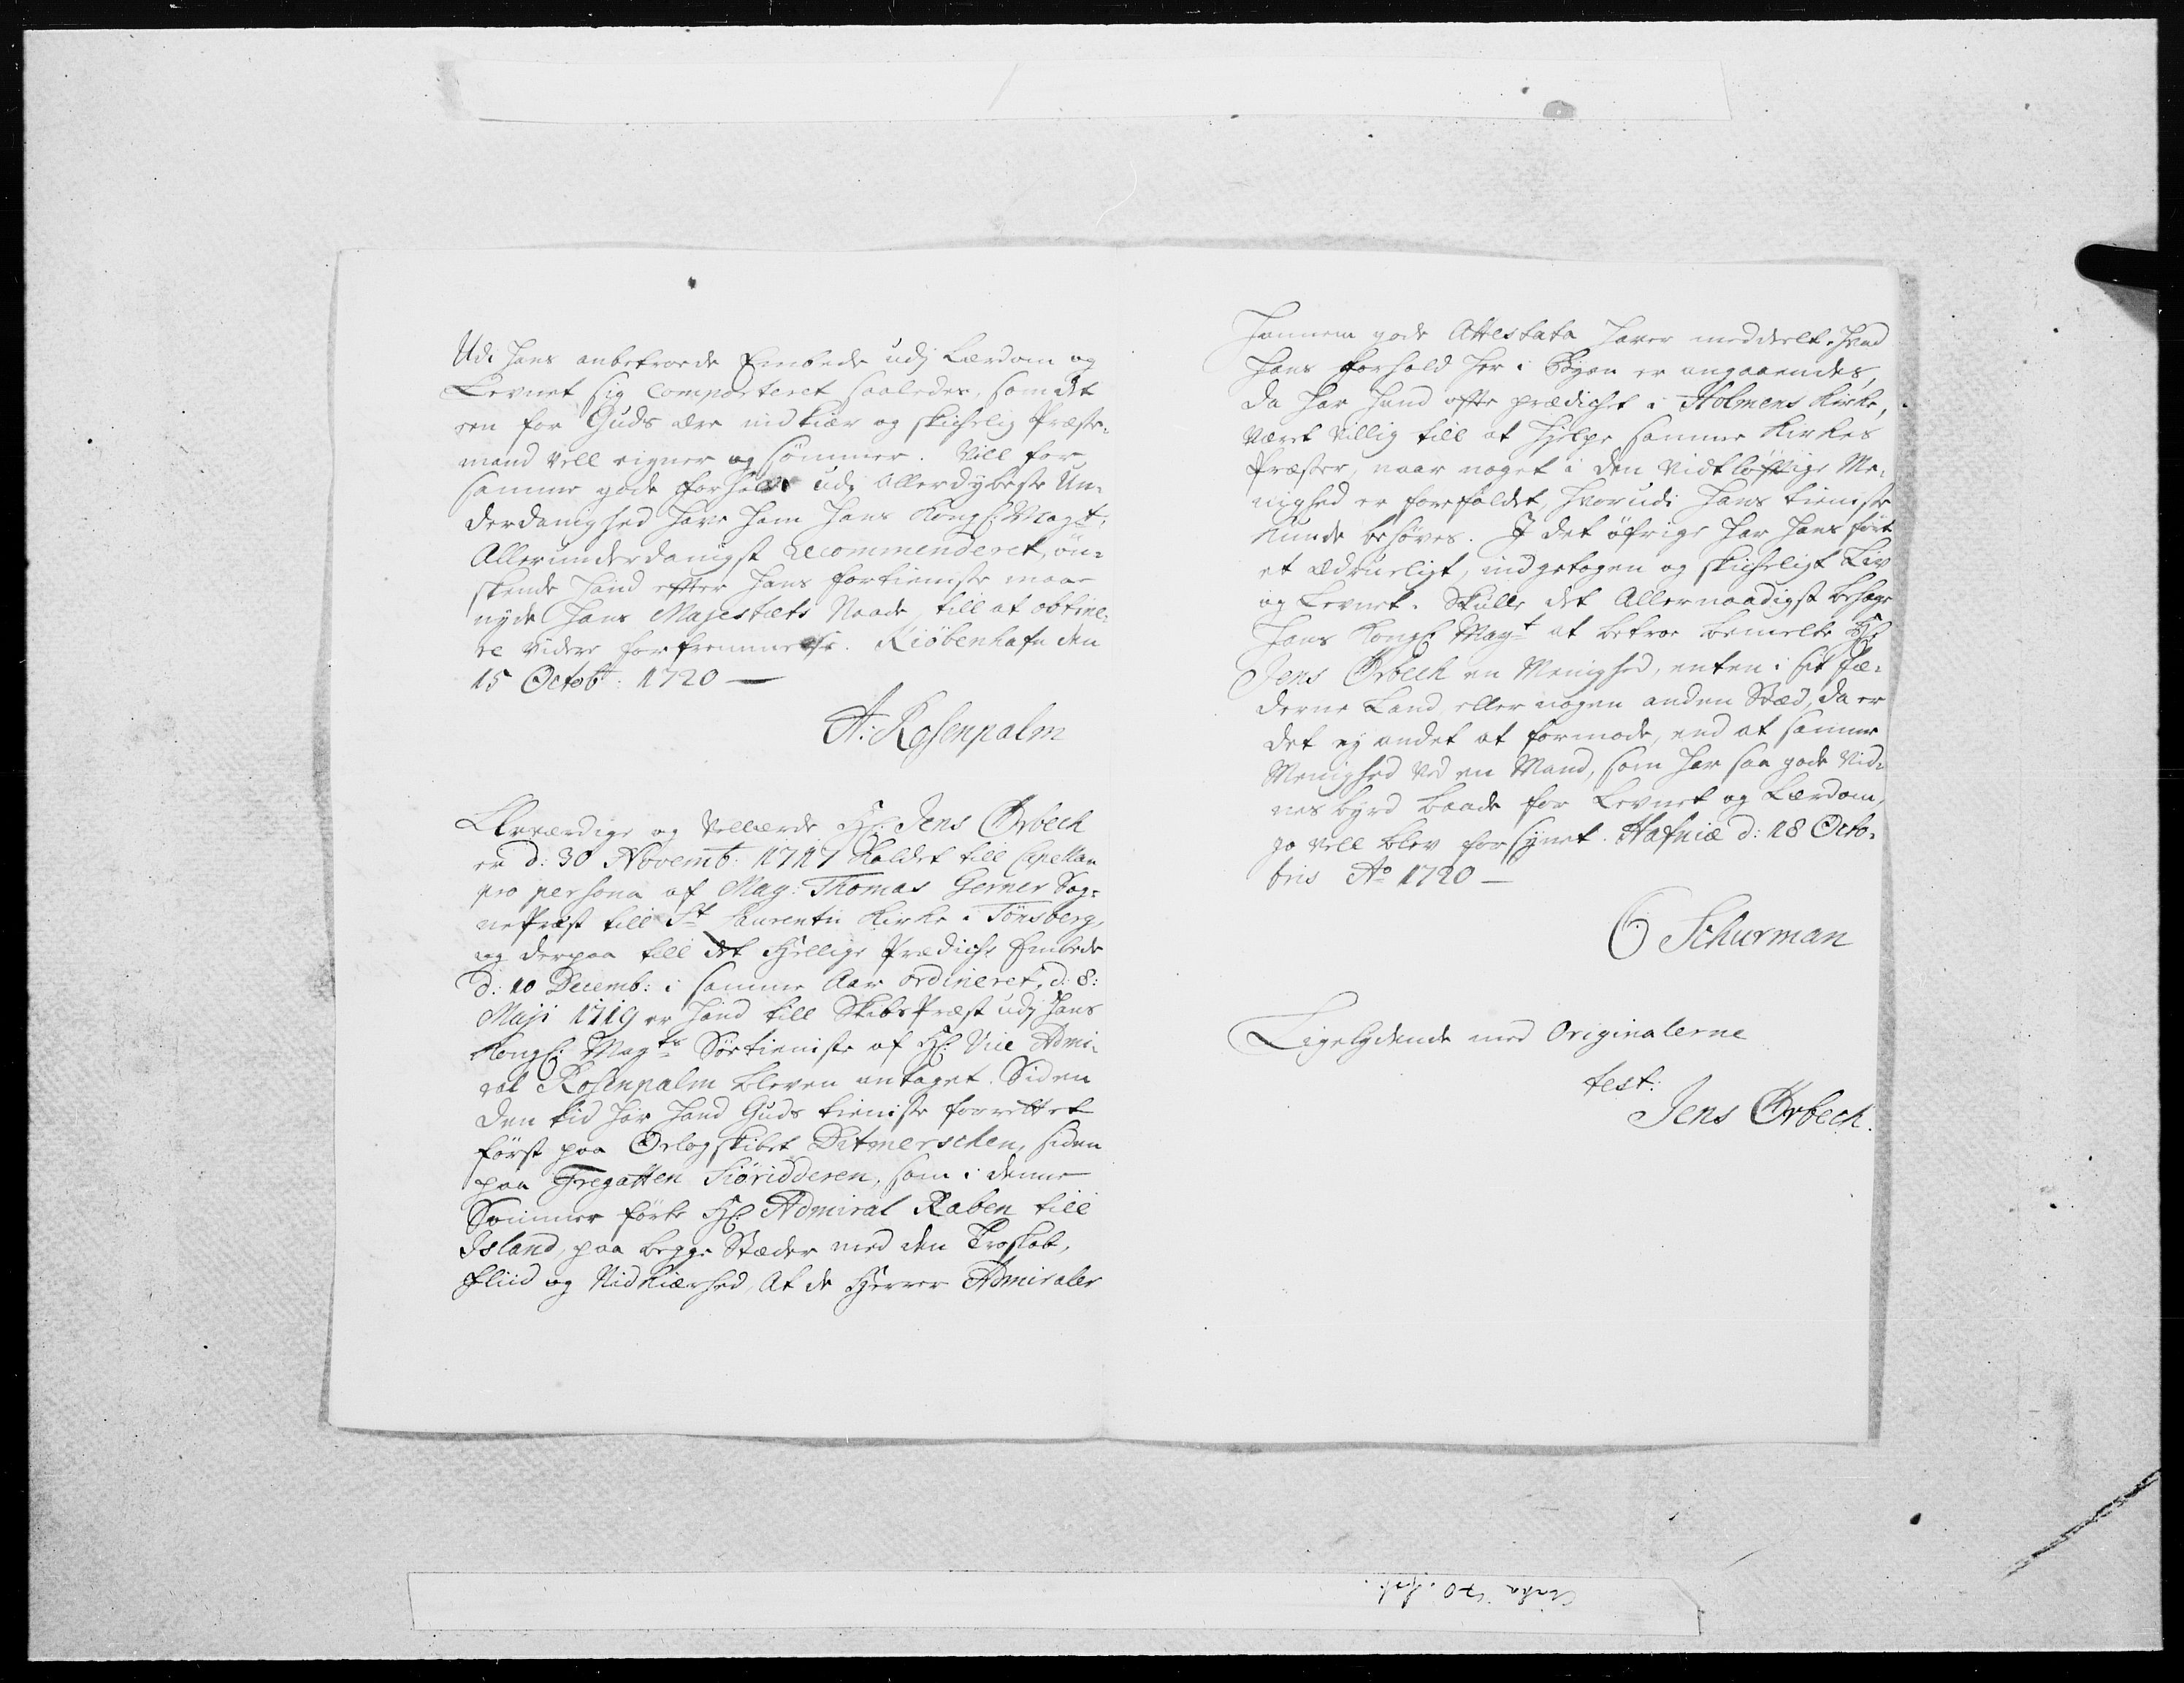 Udi hans anbetroede Embede udj Lærdom og
Levnet sig comporteret saaledes, som det
een for Guds ære nidkiær og skickelig Præste-
mand vell eigner og sømmer. Vill for
samme gode forhold udj allerdybeste Un-
derdanighed have ham hans Kongl: Mayt:
Allerunderdanigst recommenderet, øn-
skende hand efter hans fortieniste maae
nyde hans Majestæts Naade till at obtine-
re videre forfremmelse. Kiöbenhafn den
15 Octobr: 1720 —
A: Rosenpalm
Ærværdige og Vellærde Hr: Jens Ørbech
er d: 30 Novemb: 1717 kaldet till Capellan
pro persona af Mag: Thomas Gerner Sog-
nePræst till St Laurentii Kirke i Tönsberg,
og derpaa till det Hellige Prædicke Embede
d: 10 Decemb: i samme Aar ordineret, d: 8:
Maji 1719 er hand till SkibsPræst udj hans
Kongl: Mayts Søetieniste af Hr: Vice Admi-
ral Rosenpalm bleven antaget. Siden
den tid har hand Guds tieniste forrettet
först paa Orlogskibet Ditmerschen, siden
paa Fregatten Siöridderen, som i denne
Sommer förte Hr: Admiral Raben till
Island, paa begge Stæder med den Troskab,
fliid og Nidkiærhed, at de Herrer Admiraler
hannem gode Attestata haver meddeelt. Hvad
hans forhold her i Byen er angaaendes,
da har hand ofte prædicket i Holmens Kirke,
været villig till at hielpe samme Kirkes
Præster, naar noget i den vidtløftige Me-
nighed er forefaldet, hvorudi hans tieniste
kunde behøves. I det öfrige har hans fört
et ædrueligt, indgetogen og skickeligt Liv
og Levnet. Skulle det Allernaadigst behage
hans Kongl: Mayt at betroe bemelte Hr
Jens Ørbech en Menighed, enten i sit Fæ-
derne Land eller nogen anden Stæd, da er
det ej andet at formode, end at samme
Menighed ved en Mand, som har saa gode Vid-
nes byrd baade for Levnet og Lærdom,
jo vell blev forsynet. Hafniæ d: 18 Octo-
bris Ao 1720 —
O Schurman
Ligelydende med Originalerne
test:
Jens Ørbech.